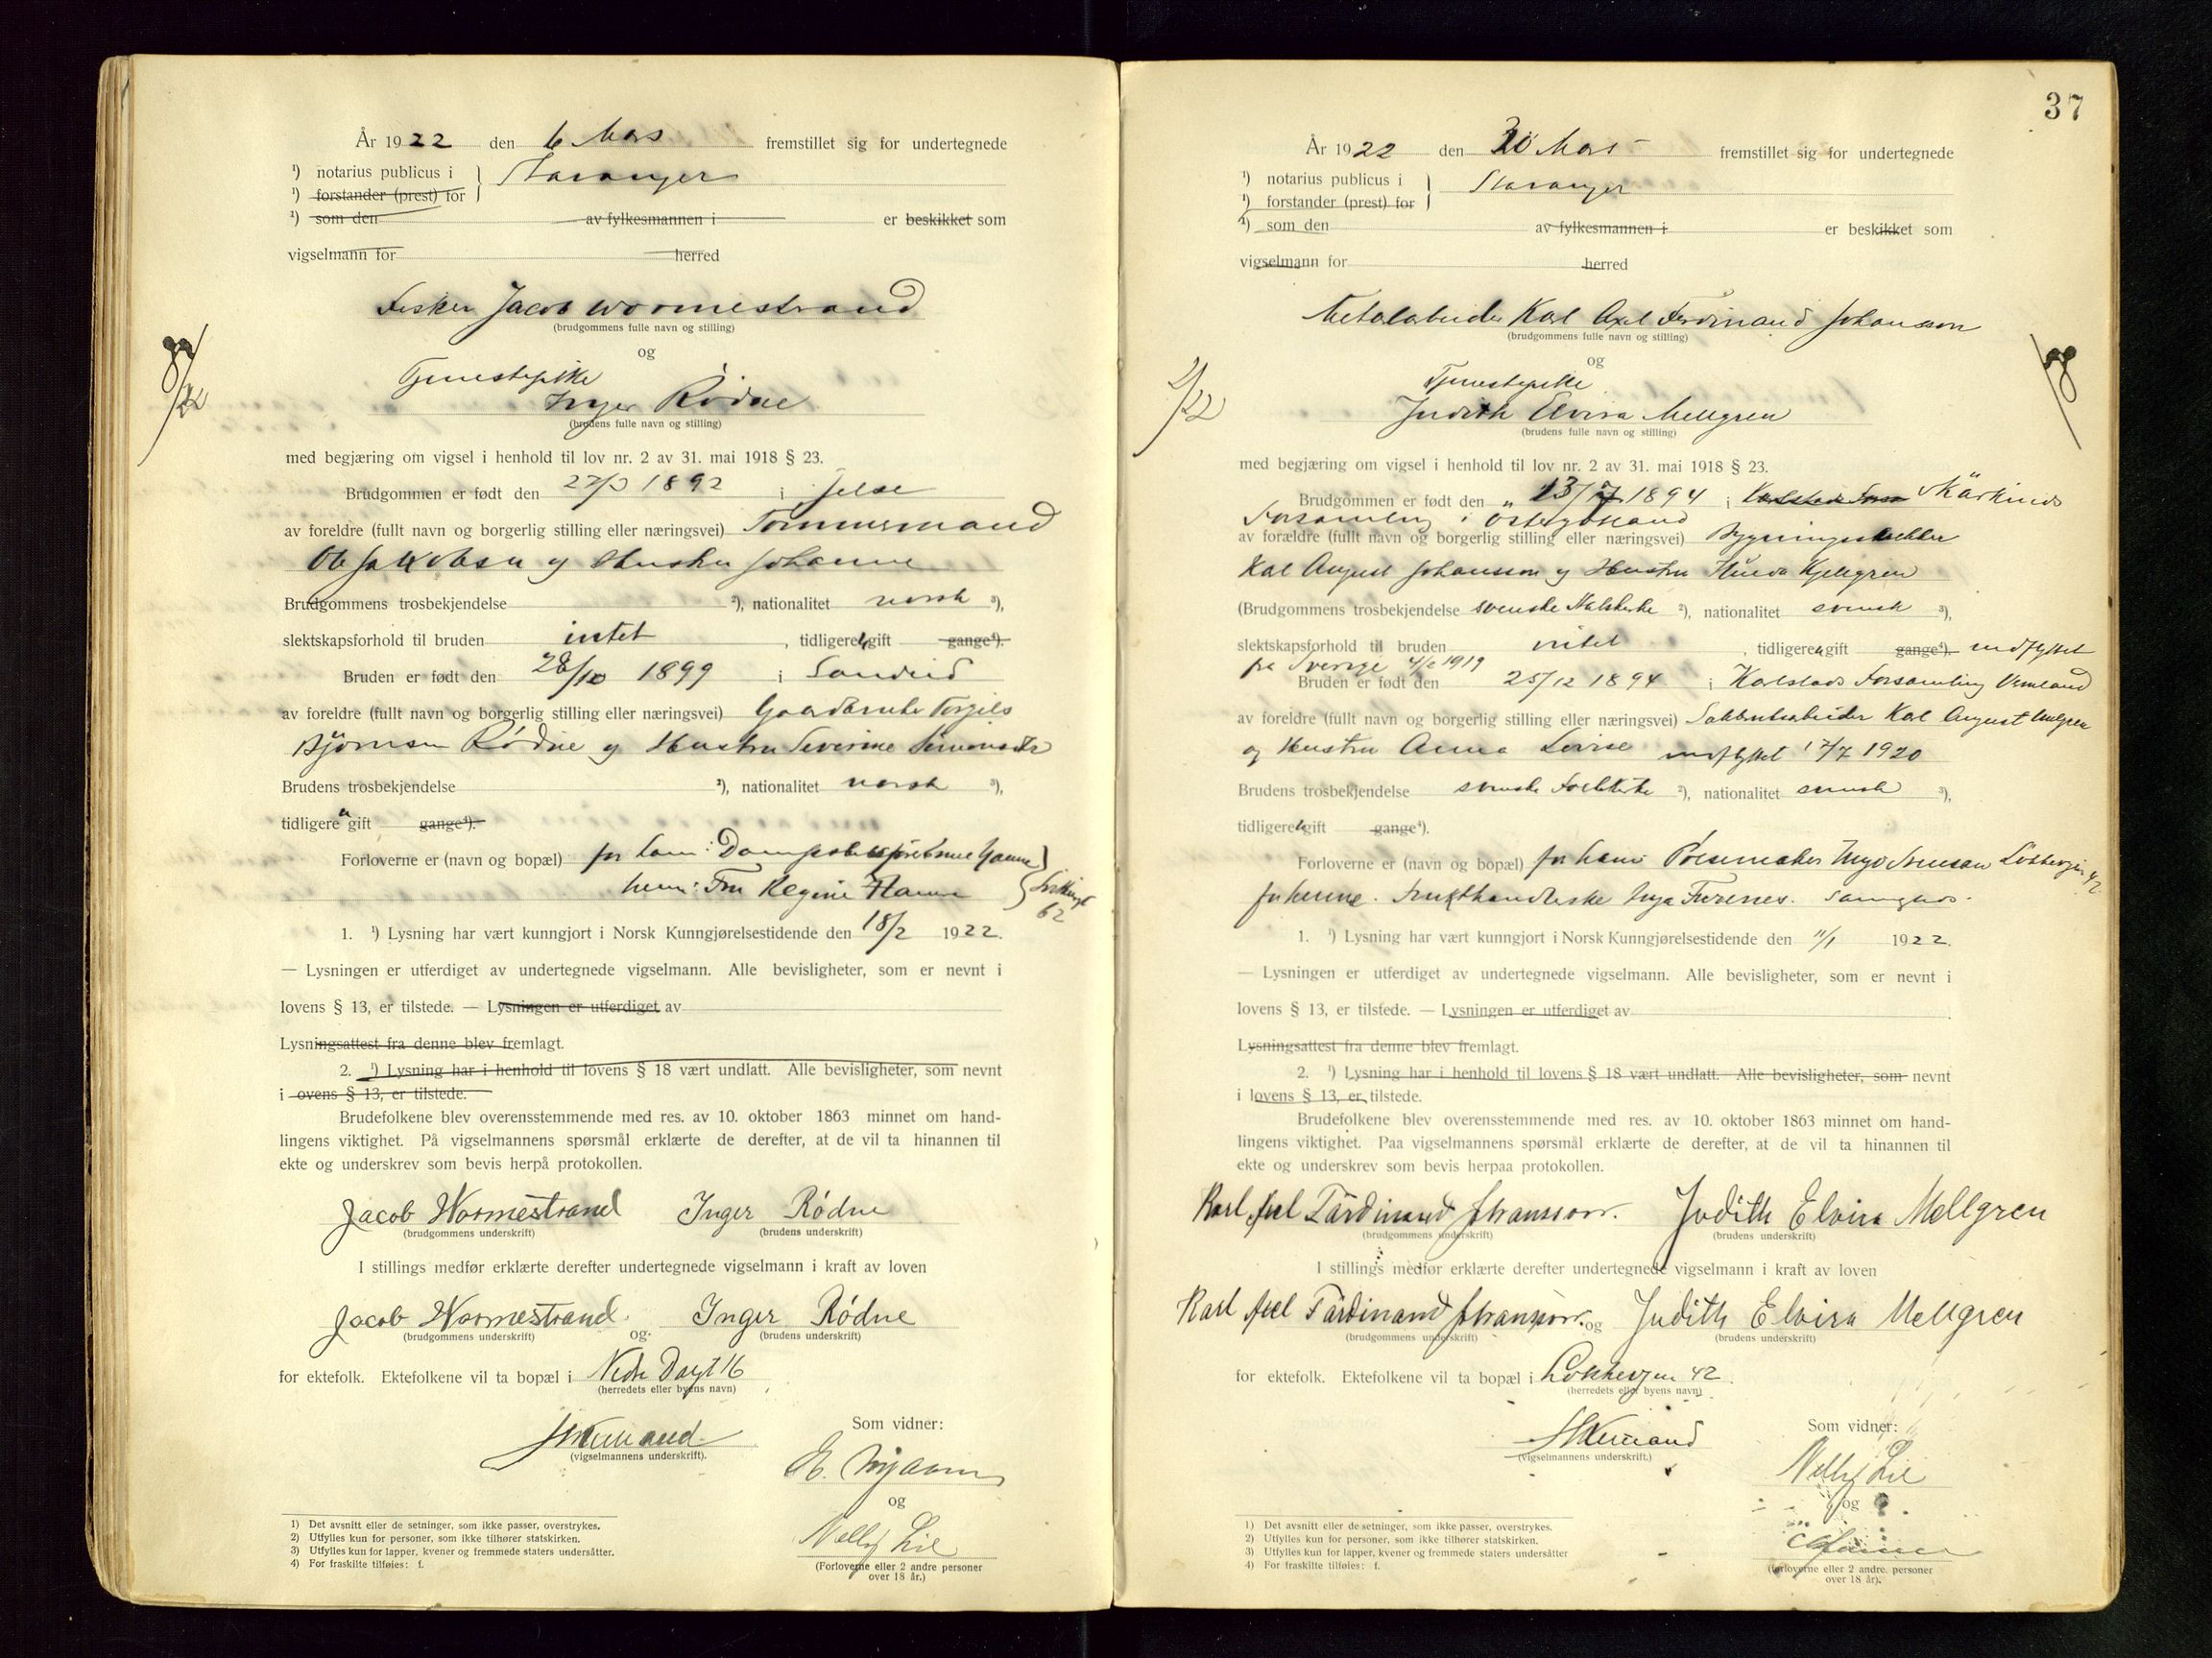 År 1922 den 6 Mars fremstillet sig for undertegnede
¹) notarius publicus i } Stavanger
¹) forstander (prest) for
¹) som den av fylkesmannen i er beskikket som
vigselmann for herred
Fisker Jacob Wormestrand
(brudgommens fulle navn og stilling)
og
Tjenestepike
Inger Rödne
(brudens fulle navn og stilling)
med begjæring om vigsel i henhold til lov nr. 2 av 31. mai 1918 § 23.
Brudgommen er født den 1892 i Jelse
av foreldre (fullt navn og borgerlig stilling eller næringsvei) Tømmermand
Ole Jakobsen og Hustru Johanne
Brudgommens trosbekjendelse ²), nationalitet norsk ³),
slektskapsforhold til bruden intet , tidligere gift gange⁴).
Bruden er født den 28/10 1899 i Sandeid
av foreldre (fullt navn og borgerlig stilling eller næringsvei) Gaardbruker Torgils
Bjørnsen Rødne og Hustru Severine Simonsdtr
Brudens trosbekjendelse ²), nationalitet norsk ³),
tidligere gift gange⁴).
Forloverne er (navn og bopæl) for ham:
henne: Fru Regine
62
1. ¹) Lysning har vært kunngjort i Norsk Kunngjørelsestidende den 18/2 1922.
— Lysningen er utferdiget av undertegnede vigselmann. Alle bevisligheter, som er nevnt i
lovens § 13, er tilstede. — Lysningen er utferdiget av
Lysningsattest fra denne blev fremlagt.
2. ¹) Lysning har i henhold til lovens § 18 vært undlatt. Alle bevisligheter, som nevnt
i ovens § 13, er tilstede.
Brudefolkene blev overensstemmende med res. av 10. oktober 1863 minnet om hand-
lingens viktighet. På vigselmannens spørsmål erklærte de derefter, at de vil ta hinannen til
ekte og underskrev som bevis herpå protokollen.
Jacob Wormestrand Inger Rödne
(brudgommens underskrift) (brudens underskrift)
I stillings medfør erklærte derefter undertegnede vigselmann i kraft av loven
Jacob Wormestrand. og Inger Rödne
(brudgommens underskrift) (brudens underskrift)
for ektefolk. Ektefolkene vil ta bopæl i Nedre 16
(herredets eller byens navn)
(vigselmannens underskrift).
Som vidner:
og
Nelly Lie
(Forloverne eller 2 andre personer
over 18 år.)
1) Det avsnitt eller de setninger, som ikke passer, overstrykes.
2) Utfylles kun for personer, som ikke tilhører statskirken.
3) Utfylles kun for lapper, kvener og fremmede staters undersåtter.
4) For fraskilte tilføies: f.
37
År 1922 den 30 Mars fremstillet sig for undertegnede
¹) notarius publicus i } Stavanger
¹) forstander (prest) for
¹) som den av fylkesmannen i er beskikket som
vigselmann for herred
Metalarbeider Karl Axel Ferdinand Johansson
(brudgommens fulle navn og stilling)
og
Tjenestepike
Judith Elvira Mellgren
(brudens fulle navn og stilling)
2/22
med begjæring om vigsel i henhold til lov nr. 2 av 31. mai 1918 § 23.
Brudgommen er født den 13/7 1894 i Skärkinds
Forsamling i Östergötland
av forældre (fullt navn og borgerlig stilling eller næringsvei)
Karl August Johansson og Hustru Kjellgren
(Brudgommens trosbekjendelse svenske ²), nationalitet svensk ³),
slektskapsforhold til bruden intet , tidligere gift gange⁴). indflyttet
fra Sverige 4/2 1919
Bruden er født den 25/12 1894 i Karlstads Forsamling Vermland
av foreldre (fullt navn og borgerlig stilling eller næringsvei) Karl August Melgren
og Hustru Anna Lovise indflyttet 17/7 1920
Brudens trosbekjendelse svenske ²), nationalitet svensk ³),
tidligere gift gange⁴).
Forloverne er (navn og bopæl) for ham: Pølsemaker 42
for henne: Frukthandlerske Inga Furenes.
1. ¹) Lysning har vært kunngjort i Norsk Kunngjørelsestidende den 11/1 1922.
— Lysningen er utferdiget av undertegnede vigselmann. Alle bevisligheter, som er nevnt i
lovens § 13, er tilstede. — Lysningen er utferdiget av
Lysningsattest fra denne blev fremlagt.
2. ¹) Lysning har i henhold til lovens § 18 vært undlatt. Alle bevisligheter, som nevnt
i lovens § 13, er tilstede.
Brudefolkene blev overensstemmende med res. av 10. oktober 1863 minnet om hand-
lingens viktighet. Paa vigselmannens spørsmål erklærte de derefter, at de vil ta hinannen til
ekte og underskrev som bevis herpaa protokollen.
Karl Axel Färdinand Johansson. Judith Elvira Mellgren
(brudgommens underskrift) (brudens underskrift)
I stillings medfør erklærte derefter undertegnede vigselmann i kraft av loven
Karl Axel Färdinand Johansson. og Judith Elvira Mellgren
(brudgommens underskrift) (brudens underskrift)
for ektefolk. Ektefolkene vil ta bopæl i Løkkeveien 42.
(herredets eller byens navn)
(vigselmannens underskrift.)
Som vidner:
Nelly Lie
og
(forloverne eller 2 andre personer
over 18 år).
1) Det avsnitt eller de setninger, som ikke passer, overstrykes.
2) Utfylles kun for personer, som ikke tilhører statskirken.
3) Utfylles kun for lapper, kvener og fremmede staters undersåtter
4) For fraskilte tilføies: f.